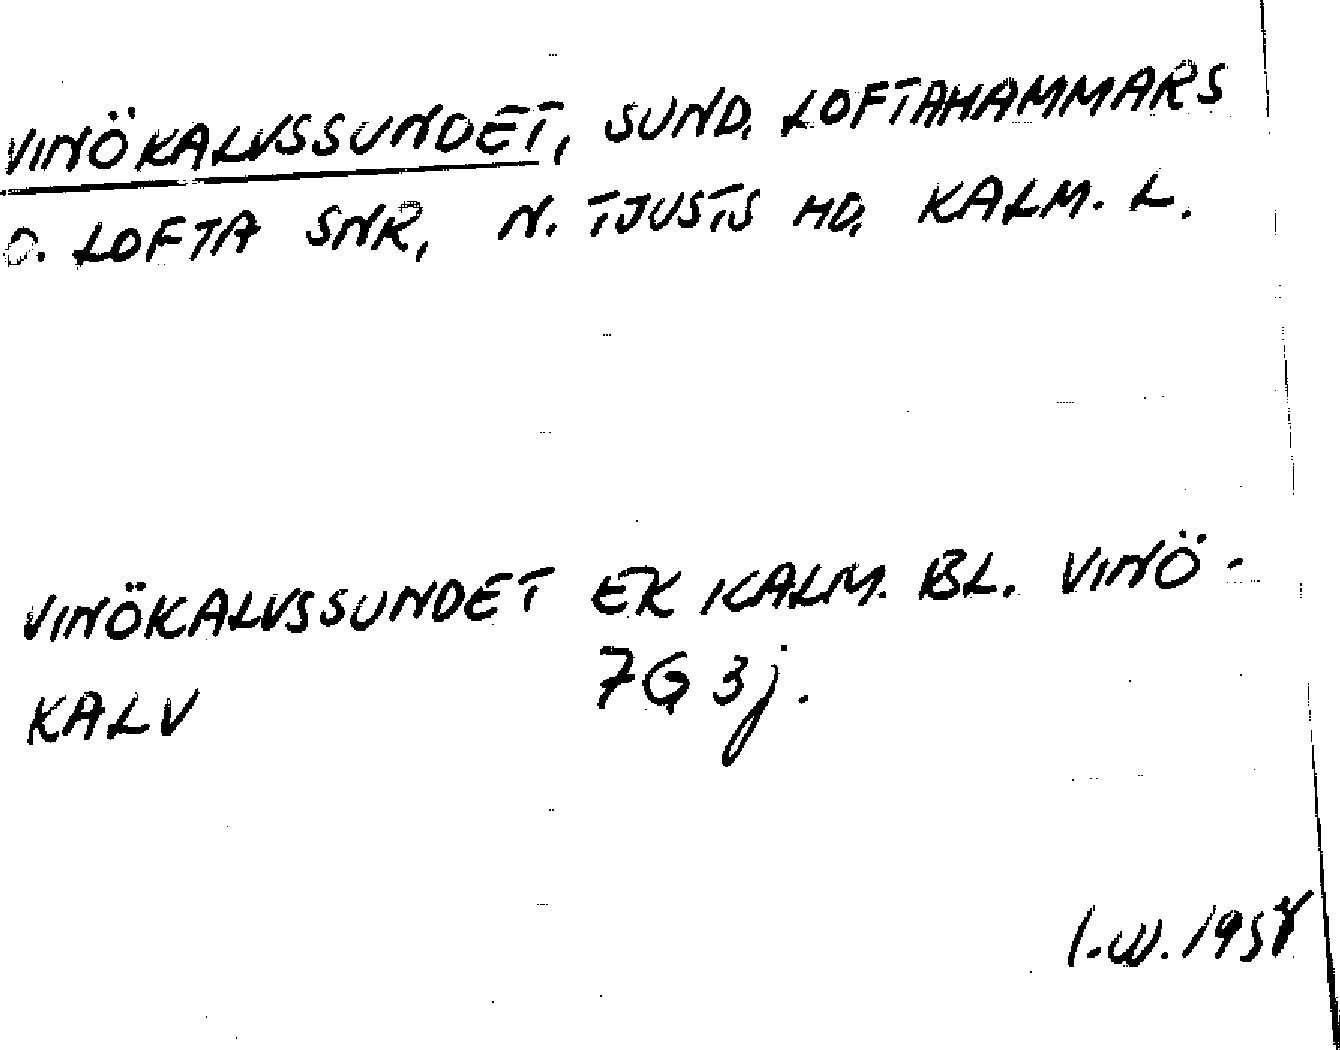 VINÖKALVSSUNDET, SUND. LOFTAHAMMARS
O. LOFTA SNR, N. TJUSTS HD, KALM. L.
VINÖKALVSSUNDET EK KALM. BL. VINÖ-
KALV 7G 3j.
I.W. 1958